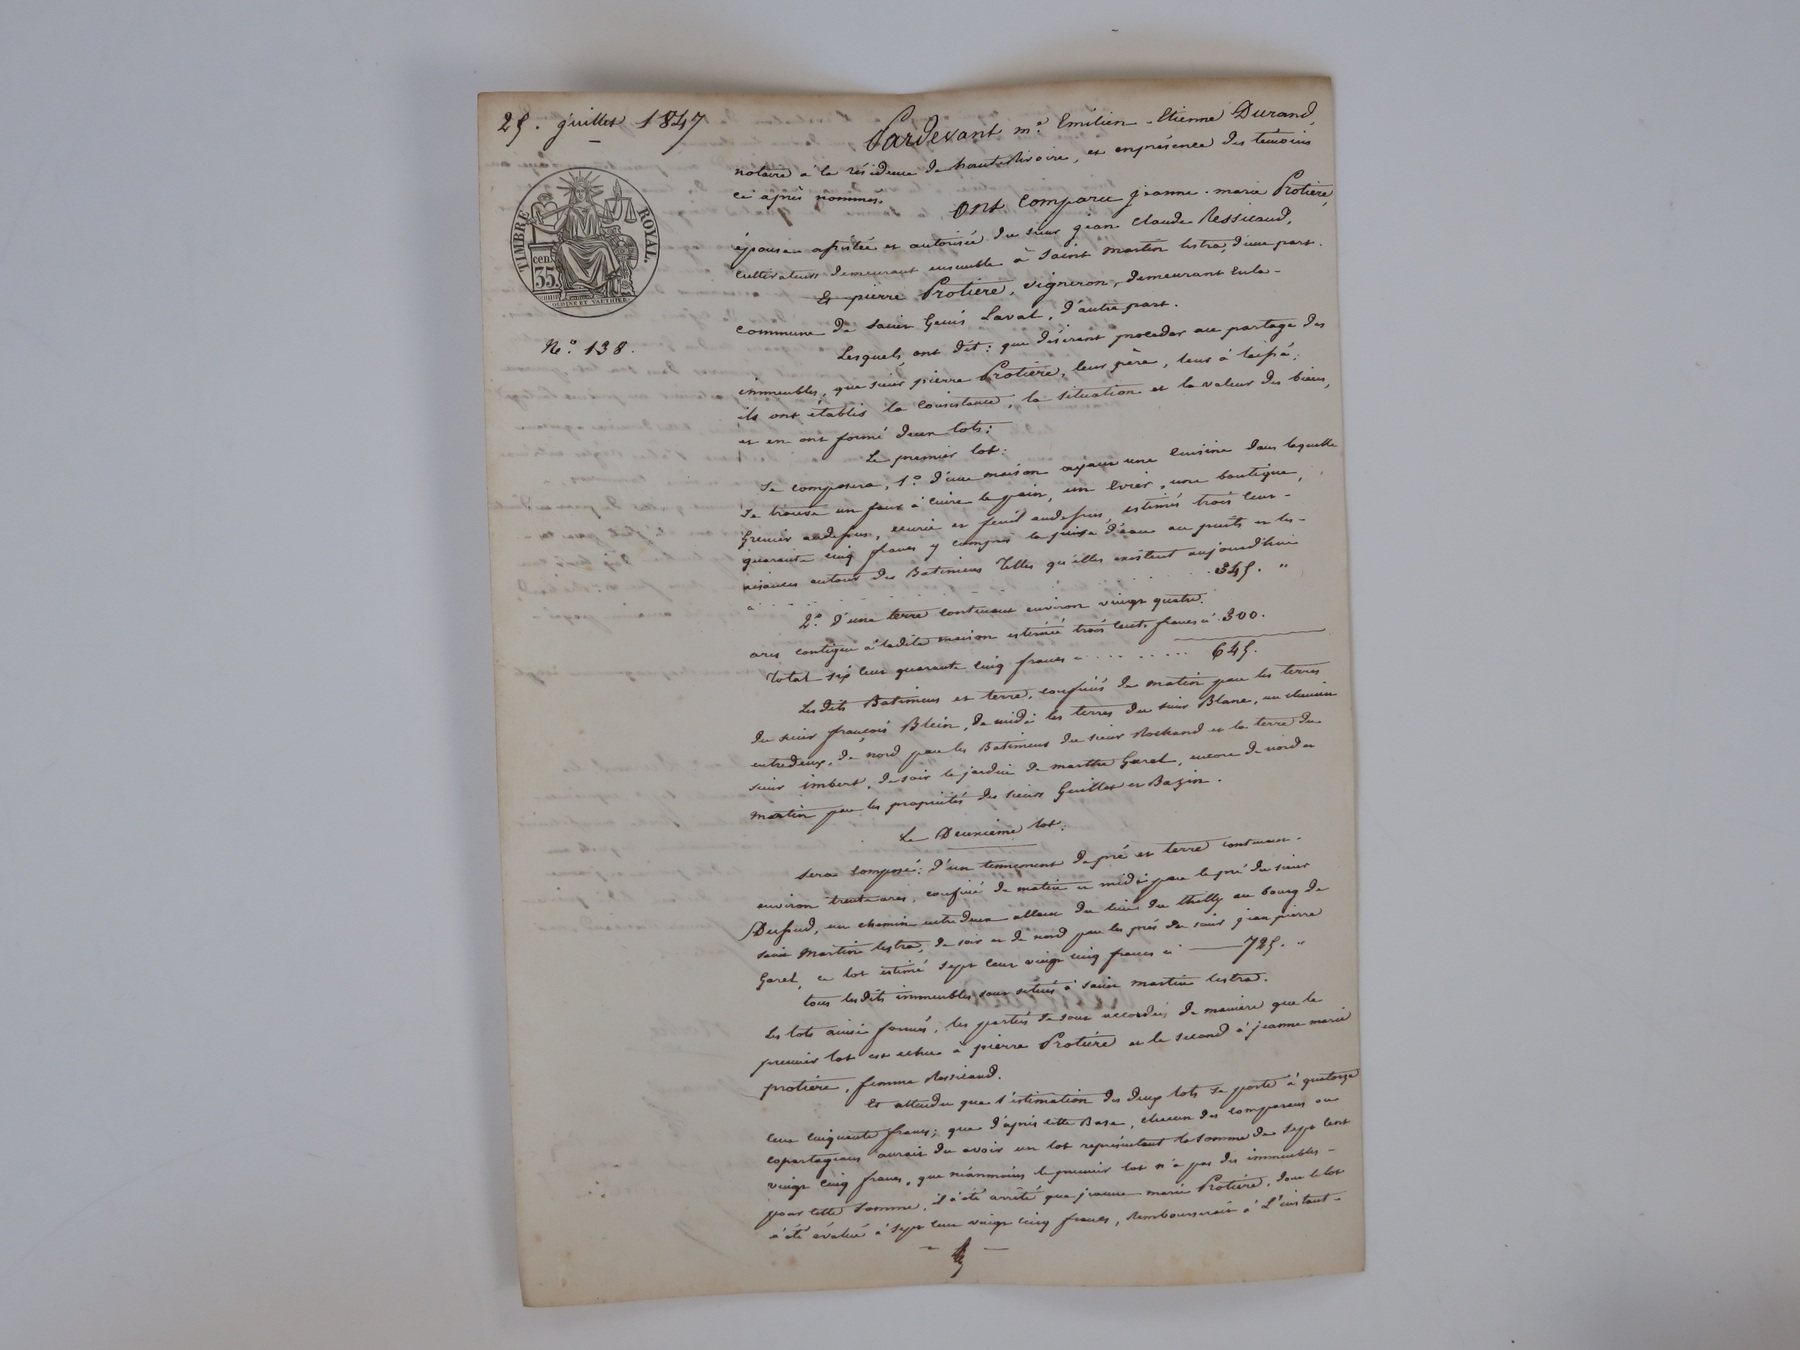 25. juillet 1847
TIMBRE ROYAL.
cen. 35.
N.o 138.
Pardevant m.e Emilien-Etienne Durand,
notaire à la résidence de hauterivoire, et enprésence des témoins
ci après nommés.
Ont comparu jeanne-marie Protière,
épouse assistée et autorisée du sieur jean Claude Ressicaud,
cultivateurs demeurant ensemble à saint martin lestra, d'une part.
Et pierre Protière, vigneron, demeurant enla-
commune de saint Genis Laval, d'autre part.
Lesquels, ont dit: que désirant procéder au partage des
immeubles, que sieur pierre Protière, leur père, leur à laissé;
ils ont établis la consistance, la situation et la valeur des biens,
et en ont formé deux lots:
Le premier lot:
Se composera, 1.o d'une maison ayant une cuisine dans laquelle
se trouve un four à cuire le pain, un évier, une boutique,
Grenier audessus, écurie et fenil audessus, estimés trois cent-
quarante cinq francs y compris la puisé d'eau au puits et les-
aisances autour des Batimens telles qu'elles existent aujourd'hui
à . . . . . . . . . . . . 345. "
2.o D'une terre contenant environ vingt quatre
ares contigue à ladite maison estimée trois cents francs à 300.
Total six cent quarante cinq francs à . . . . . . 645.
Les dits Batimens et terre, confinés de matin par les terres
du sieur françois Blein, de midi les terres du sieur Blanc, un chemin
entredeux, de nord par les Batimens du sieur Rochand et la terre du
sieur imbert, de soir le jardin de marthe Garel, encore de nord et
martin par les propriétés des sieurs Guillot et Bazin.
Le Deuxième lot:
Sera composé: d'un tennement de pré et terre contenant-
environ trente ares, confiné de matin et midi par le pré du sieur
un chemin entredeux allant du lieu du thilly au bourg de
saint Martin lestra, de soir et de nord par les prés du sieur jean pierre
Garel, ce lot estimé sept cent vingt cinq francs ci — 725. "
tous lesdits immeubles sont situés à saint martin lestra.
Les lots ainsi formés, les parties se sont accordées de manière que le
premier lot est echu à pierre Protière et le second à jeanne marie
protière, femme Ressicaud.
Et attendu que l'estimation des deux lots se porte à quatorze
cent cinquante francs; que d'après cette Base, chacun des comparans ou
copartageans aurait du avoir un lot représentant la somme de sept cent
vingt cinq francs, que néanmoins le premier lot n'a pas des immeubles-
pour cette somme, il a été arrêté que jeanne marie Protière, dont le lot
a été évalué à sept cent vingt cinq francs, rembourserait à l'instant-